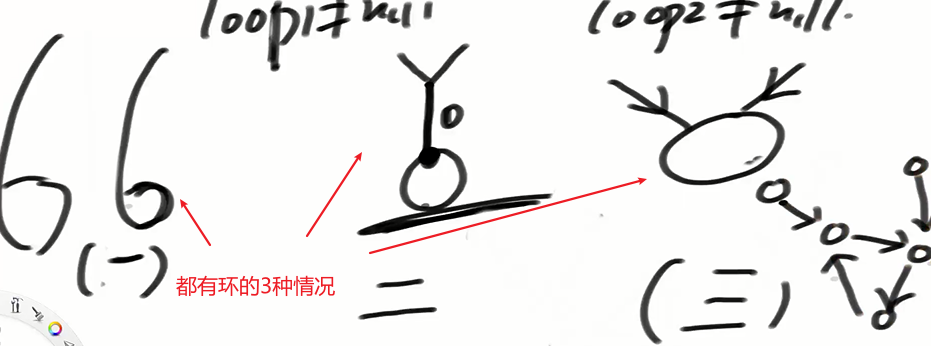 loop1≠null loop2≠null.
66
0
(一) 二 (三)
都有环的3种情况